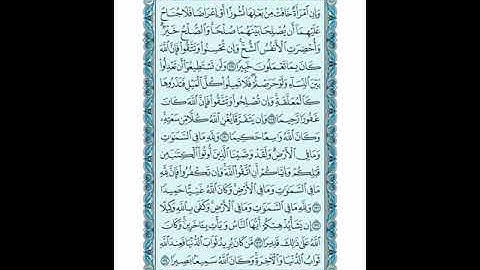 وَإِنِ ٱمْرَأَةٌ خَافَتْ مِنۢ بَعْلِهَا نُشُوزًا أَوْ إِعْرَاضًا فَلَا جُنَاحَ
عَلَيْهِمَآ أَن يُصْلِحَا بَيْنَهُمَا صُلْحًا ۚ وَٱلصُّلْحُ خَيْرٌ ۗ
وَأُحْضِرَتِ ٱلْأَنفُسُ ٱلشُّحَّ ۚ وَإِن تُحْسِنُوا۟ وَتَتَّقُوا۟ فَإِنَّ ٱللَّهَ
كَانَ بِمَا تَعْمَلُونَ خَبِيرًا ١٢٨ وَلَن تَسْتَطِيعُوٓا۟ أَن تَعْدِلُوا۟
بَيْنَ ٱلنِّسَآءِ وَلَوْ حَرَصْتُمْ ۖ فَلَا تَمِيلُوا۟ كُلَّ ٱلْمَيْلِ فَتَذَرُوهَا
كَٱلْمُعَلَّقَةِ ۚ وَإِن تُصْلِحُوا۟ وَتَتَّقُوا۟ فَإِنَّ ٱللَّهَ كَانَ
غَفُورًا رَّحِيمًا ١٢٩ وَإِن يَتَفَرَّقَا يُغْنِ ٱللَّهُ كُلًّا مِّن سَعَتِهِۦ ۚ
وَكَانَ ٱللَّهُ وَٰسِعًا حَكِيمًا ١٣٠ وَلِلَّهِ مَا فِى ٱلسَّمَٰوَٰتِ
وَمَا فِى ٱلْأَرْضِ ۗ وَلَقَدْ وَصَّيْنَا ٱلَّذِينَ أُوتُوا۟ ٱلْكِتَٰبَ مِن
قَبْلِكُمْ وَإِيَّاكُمْ أَنِ ٱتَّقُوا۟ ٱللَّهَ ۚ وَإِن تَكْفُرُوا۟ فَإِنَّ لِلَّهِ
مَا فِى ٱلسَّمَٰوَٰتِ وَمَا فِى ٱلْأَرْضِ ۚ وَكَانَ ٱللَّهُ غَنِيًّا حَمِيدًا
١٣١ وَلِلَّهِ مَا فِى ٱلسَّمَٰوَٰتِ وَمَا فِى ٱلْأَرْضِ ۚ وَكَفَىٰ بِٱللَّهِ وَكِيلًا
١٣٢ إِن يَشَأْ يُذْهِبْكُمْ أَيُّهَا ٱلنَّاسُ وَيَأْتِ بِـَٔاخَرِينَ ۚ وَكَانَ
ٱللَّهُ عَلَىٰ ذَٰلِكَ قَدِيرًا ١٣٣ مَّن كَانَ يُرِيدُ ثَوَابَ ٱلدُّنْيَا فَعِندَ ٱللَّهِ
ثَوَابُ ٱلدُّنْيَا وَٱلْـَٔاخِرَةِ ۚ وَكَانَ ٱللَّهُ سَمِيعًۢا بَصِيرًا ١٣٤